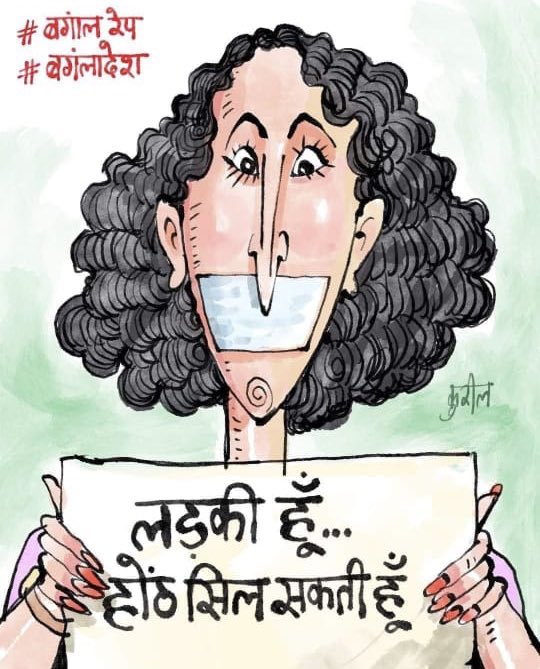 # बगाल रेप
# बगंलादेश
कुरील
लड़की हूँ...
होंठ सिल सकती हूँ